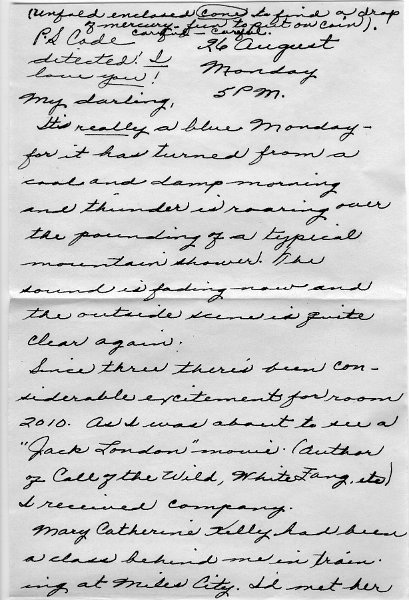 (Unfold enclosed cone to find a drop
of mercury - fun to put on coin).
careful - careful.
P.S. Code
detected! I
love you!
26 August
Monday
5 P.M.
My darling,
It's really a blue Monday -
for it has turned from a
cool and damp morning
and thunder is roaring over
the pounding of a typical
mountain shower. The
sound is fading now and
the outside scene is quite
clear again.
Since three there's been con-
siderable excitement for room
2010. As I was about to see a
"Jack London" movie (author
of Call of the Wild, White Fang, etc)
I received company.
Mary Catherine Kelly had been
a class behind me in train-
ing at Miles City. I'd met her